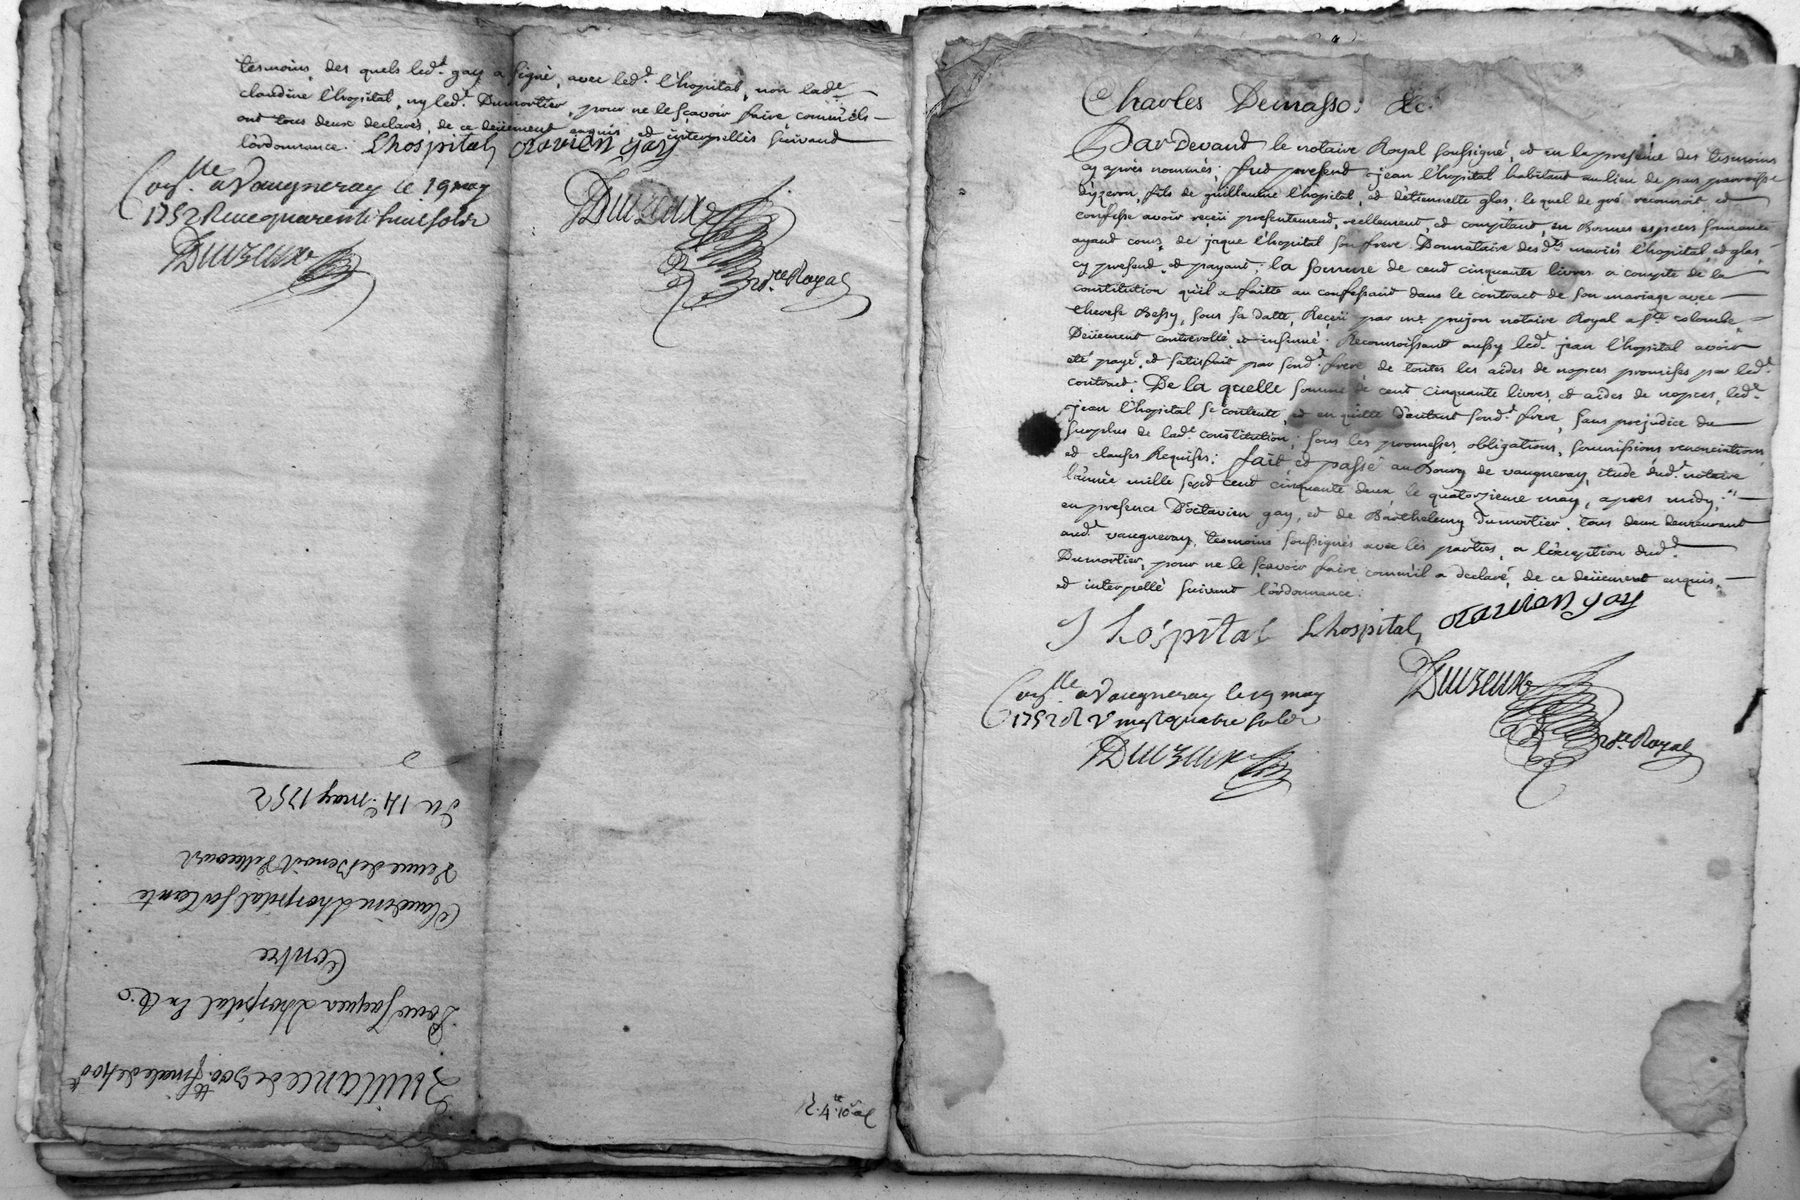 tesmoins, des quels led.t gay a signé, avec led.t l'hopital, non lad.te
claudine l'hopital, ny led.t Dumortier, pour ne le sçavoir faire, comm'ils
ont tous deux declarés, de ce deüement enquis et interpellés suivant
l'ordonnance. Lhospital octavien gay
Con.lle a Vaugneray le 19 may
1752 Receu quarente huit sols
Duvzeux
Duvzeux
n.re Royal
Quittance de 300.tt finale de 400.tt
Pour Jaques Lhospital
Contre
Claudine Lhospital sa tante
Veuve de Benoit
Du 14.e may 1752
Charles Demasso: &c.
Pardevand le notaire Royal soussigné, et en la presence des tesmoins
cy après nommés; fut present jean l'hopital habitant au lieu de paroisse
d'yzeron, fils de guillaume l'hopital, et d'etiennette glas; lequel de gré reconnoit, et
confesse avoir receü presentement, reellement, et comptant, en Bonnes especes sonnante
ayant cours, de jaque l'hopital son frere Donnataire desd.ts mariés l'hopital, et glas,
cy present, et payant; la somme de cent cinquante livres a compte de la
constitution qu'il a faitte au confessant dans le contract de son mariage avec
therese Bessy, sous sa datte, Reçeü par m.e notaire Royal a s.te colombe,
Deüement controllé et insinué; Reconnoissant aussy led.t jean l'hopital avoir
eté payé, et satisfait par sond.t frere de toutes les aides de nopces promises par led.t
contract; De la quelle somme de cent cinquante livres, et aides de nopces, led.t
jean l'hopital se contente, et en quitte d'autant sond.t frere, sans prejudice du
surplus de lad.te constitution; sous les promesses, obligations, soumissions renonciations
et clauses Requises; fait, et passé au Bourg de vaugneray, etude dud.t notaire
l'année mille sept cent cinquante deux, le quatorzieme may, après midy;
en presence D'octavien gay, et de Barthelemy Dumortier, tous deux demeurant
aud.t vaugneray, tesmoins soussignés avec les parties, a l'exception dud.t
Dumortier, pour ne le sçavoir faire comm'il a declaré, de ce deüement enquis,
et interpellé suivant l'ordonnance.
J Lhospital Lhospital octavien gay
Con.lle a Vaugneray le 19 may
1752 R Vingt quatre sols
Duvzeux
Duvzeux
n.re Royal